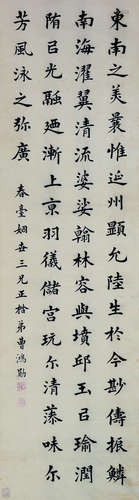 東南之美曩惟延州顯允陸生於今尠儔振鱗
南海濯翼清流婆娑翰林容與墳邱玉㠯瑜潤
陏㠯光融廼漸上京羽儀儲宮玩尒清藻味尒
芳風泳之弥廣
春臺姻三兄正弟曹鴻勛